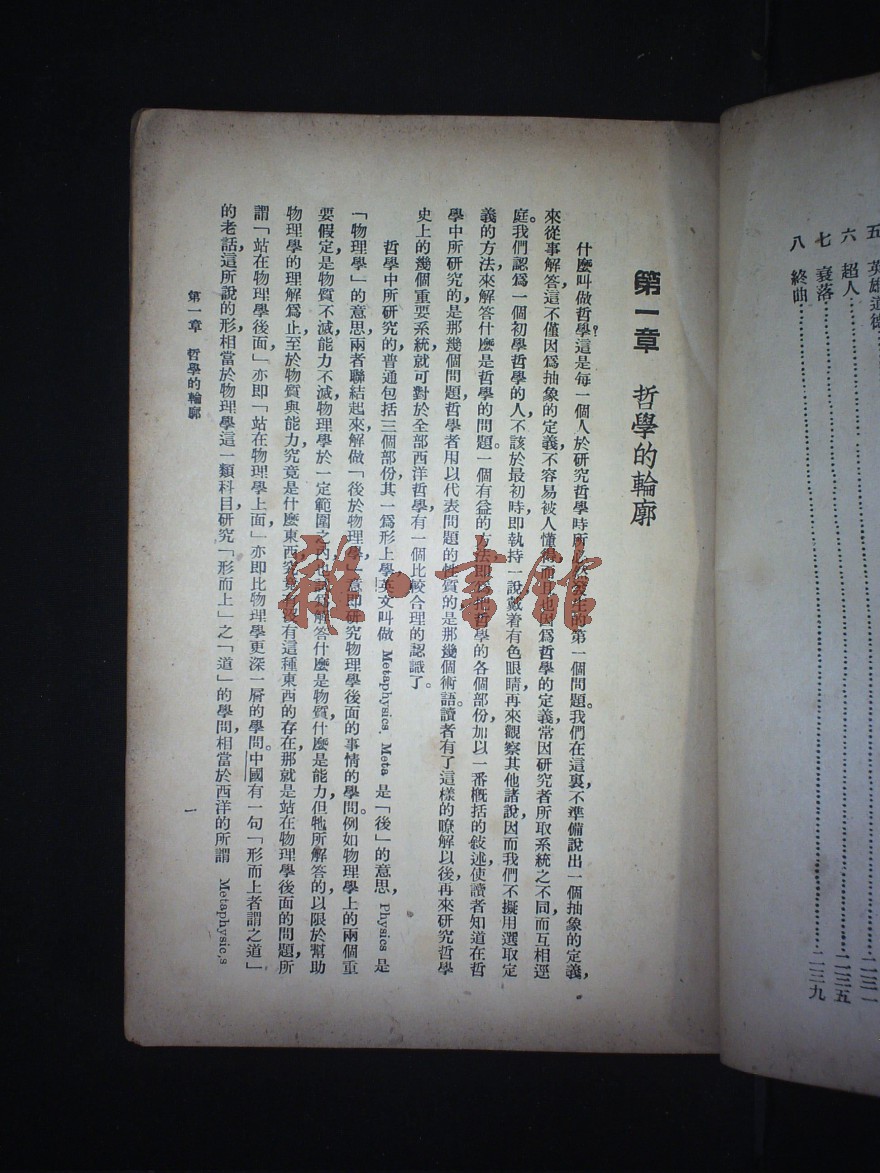 五 英雄道德
六 超人…………二三五
七 衰落
八 終曲…………二三九
第一章 哲學的輪廓
什麼叫做哲學?這是每一個人於研究哲學時所必然發生的第一個問題。我們在這裏,不準備說出一個抽象的定義,
來從事解答,這不僅因爲抽象的定義,不容易被人懂得,而且也因爲哲學的定義,常因研究者所取系統之不同,而互相逕
庭。我們認爲一個初學哲學的人,不該於最初時,即執持一說,戴着有色眼睛,再來觀察其他諸說,因而我們不擬用選取定
義的方法,來解答什麼是哲學的問題。一個有益的方法,即
哲學的各個部份,加以一番概括的敍述,使讀者知道在哲
學中所研究的,是那幾個問題,哲學者用以代表問題的性質的,是那幾個術語。讀者有了這樣的瞭解以後,再來研究哲學
史上的幾個重要系統,就可對於全部西洋哲學,有一個比較合理的認識了。
哲學中所研究的,普通包括三個部份,其一爲形上學,英文叫做 Metaphysics, Meta 是「後」的意思,Physics 是
「物理學」的意思,兩者聯結起來,解做「後於物理學」,意即研究物理學後面的事情的學問。例如物理學上的兩個重
要假定,是物質不滅,能力不滅,物理學於一定範圍之內,也
解答什麼是物質,什麼是能力,但牠所解答的,以限於幫助
物理學的理解爲止,至於物質與能力,究竟是什麼東西,究竟有沒有這種東西的存在,那就是站在物理學後面的問題,所
謂「站在物理學後面」,亦即「站在物理學上面」,亦即比物理學更深一層的學問。中國有一句「形而上者謂之道」
的老話,這所說的形,相當於物理學這一類科目,研究「形而上」之「道」的學問,相當於西洋的所謂 Metaphysic,s
第一章 哲學的輪廓
一
雜·書館